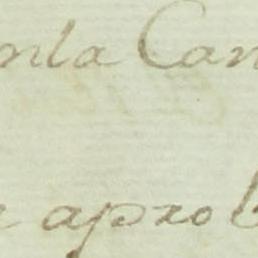 nla Can
e aprob